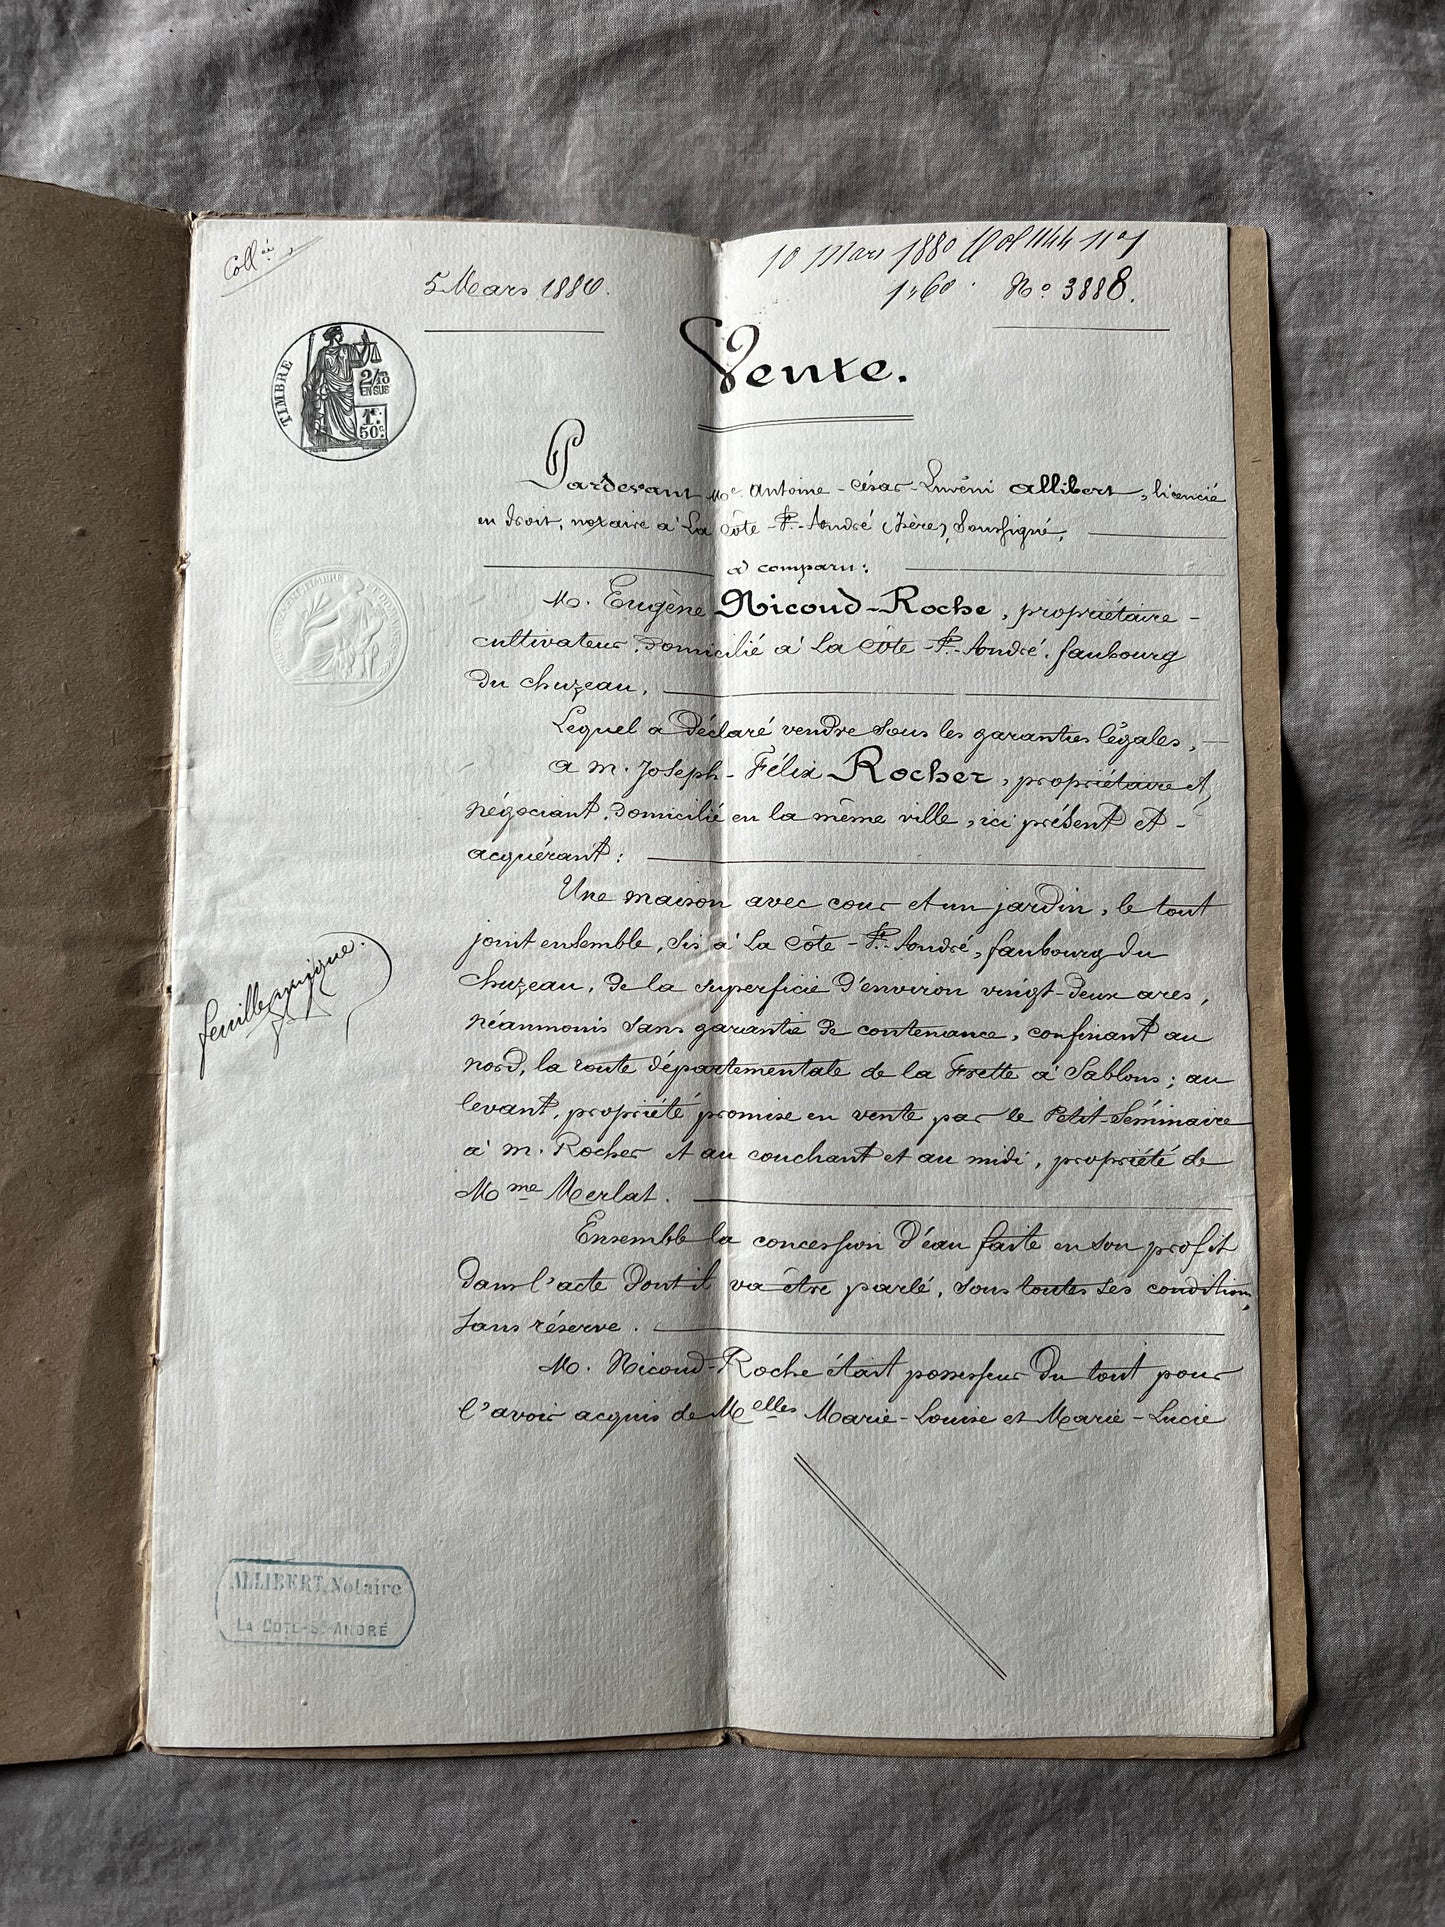 Coll.ée
5 Mars 1880.
10 Mars 1880 Vol 1144 nº 1
1,60. Nº 3888.
TIMBRE
2/10 EN SUS
1F. 50c.
Vente.
Pardevant Me. Antoine-César-Juvéni Allibert, licencié
en droit, notaire à La Côte-St.-André (Isère), soussigné,
a comparu:
M. Eugène Nicoud-Roche, propriétaire-
cultivateur, domicilié à La Côte-St.-André, faubourg
du Chuzeau,
Lequel a déclaré vendre sous les garanties légales,
a M. Joseph-Félix Rocher, propriétaire et
négociant, domicilié en la même ville, ici présent et
acquérant:
Une maison avec cour et un jardin, le tout
joint ensemble, sis à La Côte-St.-André, faubourg du
Chuzeau, de la superficie d'environ vingt-deux ares,
néanmoins sans garantie de contenance, confinant au
nord, la route départementale de la Frette à Sablons; au
levant, propriété promise en vente par le Petit-Séminaire
à M. Rocher et au couchant et au midi, propriété de
Mme Merlat.
Ensemble la concession d'eau faite en son profit
dans l'acte dont il va être parlé, sous toutes ses conditions,
sans réserve.
M. Nicoud-Roche était possesseur du tout pour
l'avoir acquis de Melles Marie-Louise et Marie-Lucie
feuille unique.
ALLIBERT, Notaire
LA COTE-St-ANDRÉ